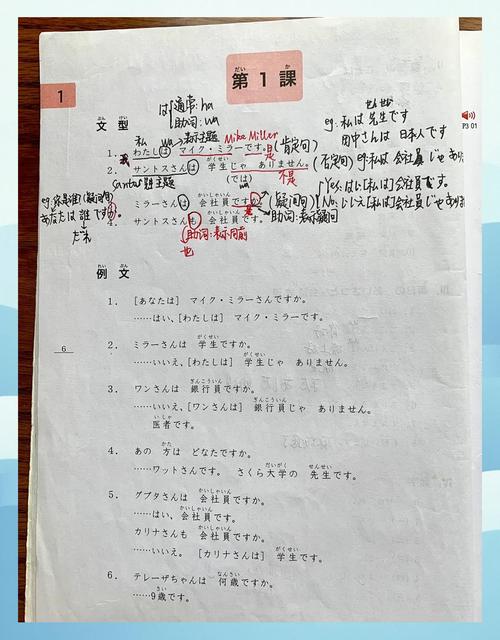 第1課
1
は 通常:ha
助词:wa
せんせい
eg:私は 先生です
田中さんは 日本人です
P3 01
文型
私 wa→表示主题 Mike Miller
1. わたしは マイク・ミラーです。是(肯定句)
2. サントスさんは 学生じゃ ありません。(否定句) eg:私は 会社員 じゃあり
santos 主题 (では) wa 不是
eg:你是谁(疑问句)
3. ミラーさんは 会社員ですか。(疑问句) Yes:はい[私は]会社員です。
あなたは 誰ですか。
No:いいえ[私は]会社員じゃあり
助词:表示疑问
だれ
4. サントスさんも 会社員です。
助词:表示同前
也
例文
1. [あなたは] マイク・ミラーさんですか。
……はい、[わたしは] マイク・ミラーです。
2. ミラーさんは 学生ですか。
……いいえ、[わたしは] 学生じゃ ありません。
6
3. ワンさんは 銀行員ですか。
……いいえ、[ワンさんは] 銀行員じゃ ありません。
医者です。
4. あの 方は どなたですか。
……ワットさんです。 さくら大学の 先生です。
5. グプタさんは 会社員ですか。
……はい、会社員です。
カリナさんも 会社員ですか。
……いいえ。 [カリナさんは] 学生です。
6. テレーザちゃんは 何歳ですか。
……9歳です。